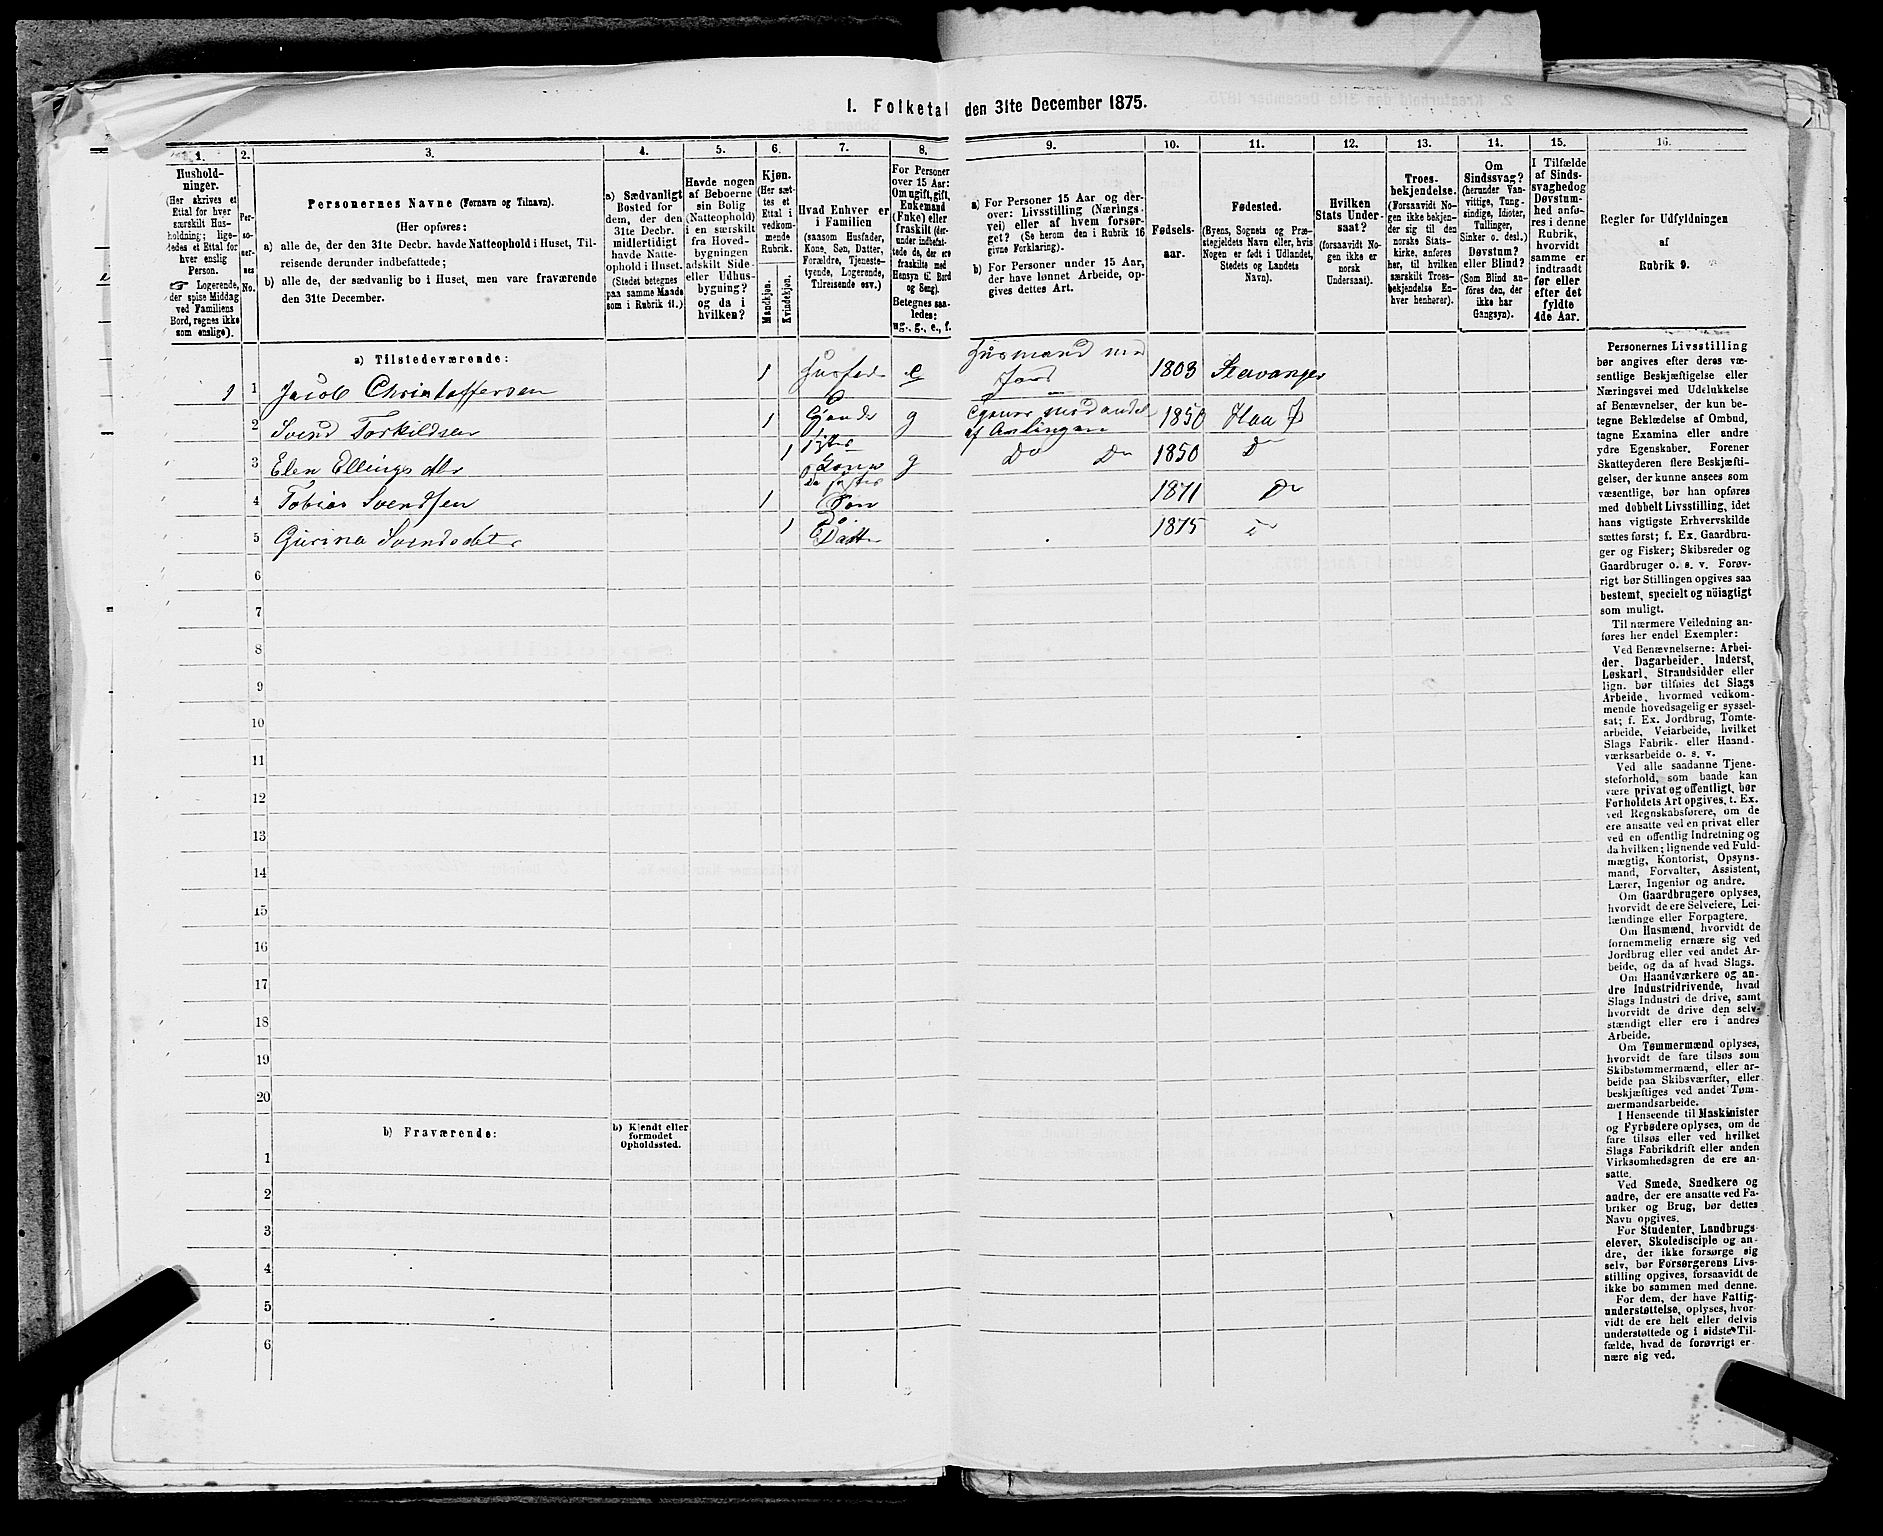 I. Folketal den 31te December 1875.
1. 2. 3. 4. 5. 6. 7. 8. 9. 10. 11. 12. 13. 14. 15. 16.
Husholdninger.
(Her skrives et
Ettal for hver
særskilt Hus-
holdning; lige-
ledes et Ettal for
hver enslig
Person.
☞ Logerende,
der spise Middag
ved Familiens
Bord, regnes ikke
som enslige).
Personernes No.
Personernes Navne (Fornavn og Tilnavn).
(Her opføres:
a) alle de, der den 31te Decbr. havde Natteophold i Huset, Til-
reisende derunder indbefattede;
b) alle de, der sædvanlig bo i Huset, men vare fraværende
den 31te December.
a) Sædvanligt
Bosted for
dem, der den
31te Decbr.
midlertidigt
havde Natte-
ophold i Huset.
(Stedet betegnes
paa samme Maade
som i Rubrik 11.)
Havde nogen
af Beboerne
sin Bolig
(Natteophold)
i en særskilt
fra Hoved-
bygningen
adskilt Side-
eller Udhus-
bygning?
og da i
hvilken?
Kjøn.
(Her sæt-
tes et
Ettal i
vedkom-
mende
Rubrik.
Mandkjøn.
Kvindekjøn.
Hvad Enhver er
i Familien
(saasom Husfader,
Kone, Søn, Datter,
Forældre, Tjeneste-
tyende, Logerende,
Tilreisende osv.)
For Personer
over 15 Aar:
Om ugift, gift,
Enkemand
(Enke) eller
fraskilt (der-
under indbefat-
tede de, der ere
fraskilte med
Hensyn til Bord
og Seng).
Betegnes saa-
ledes:
ug., g., e., f.
a) For Personer 15 Aar og der-
over: Livsstilling (Nærings-
vei) eller af hvem forsør-
get? (Se herom den i Rubrik 16
givne Forklaring).
b) For Personer under 15 Aar,
der have lønnet Arbeide, op-
gives dettes Art.
Fødsels-
aar.
Fødested.
(Byens, Sognets og Præ-
stegjeldets Navn eller, hvis
Nogen er født i Udlandet,
Stedets og Landets
Navn).
Hvilken
Stats Under-
saat?
(forsaavidt No-
gen ikke er
norsk
Undersaat).
Troes-
bekjendelse.
(Forsaavidt No-
gen ikke bekjen-
der sig til den
norske Stats-
kirke, anføres
her, til hvilken
særskilt Troes-
bekjendelse En-
hver henhører).
Om
Sindssvag?
(herunder Van-
vittige, Tung-
sindige, Idioter,
Tullinger,
Sinker o. desl.)
Døvstum?
eller Blind?
(Som Blind an-
føres den, der
ikke har
Gangsyn).
I Tilfælde
af Sinds-
svaghed og
Døvstum-
hed anfø-
res i denne
Rubrik,
hvorvidt
samme er
indtraadt
før eller
efter det
fyldte
4de Aar.
Regler for Udfyldningen
af
Rubrik 9.
a) Tilstedeværende:
1 1 Jacob Christoffersen 1 Husfader e Husmand med Jord 1803 Stavanger
2 Svend Torkildsen 1 g 1850 Haa
3 Elen Ellingsdtr 1 Kone g Do Do 1850 Do
4 Tobias Svendsen 1 Søn 1871 Do
5 Gurina Svendsdatter 1 Do. Datter 1875
6
7
8
9
10
11
12
13
14
15
16
17
18
19
20
b) Fraværende:
b) Kjendt eller
formodet
Opholdssted.
1
2
3
4
5
6
Personernes Livsstilling
bør angives efter deres væ-
sentlige Beskjæftigelse eller
Næringsvei med Udelukkelse
af Benævnelser, der kun be-
tegne Beklædelse af Ombud,
tagne Examina eller andre
ydre Egenskaber. Forener
Skatteyderen flere Beskjæfti-
gelser, der kunne ansees som
væsentlige, bør han opføres
med dobbelt Livsstilling, idet
hans vigtigste Erhvervskilde
sættes først; f. Ex. Gaardbru-
ger og Fisker; Skibsreder og
Gaardbruger o. s. v. Forøv-
rigt bør Stillingen opgives saa
bestemt, specielt og nöiagtigt
som muligt.
Til nærmere Veiledning an-
føres her endel Exempler:
Ved Benævnelserne: Arbei-
der, Dagarbeider, Inderst,
Løskarl, Strandsidder eller
lign. bør tilføies det Slags
Arbeide, hvormed vedkom-
mende hovedsagelig er syssel-
sat; f. Ex. Jordbrug, Tomte-
arbeide, Veiarbeide, hvilket
Slags Fabrik- eller Haand-
værksarbeide o. s. v.
Ved alle saadanne Tjene-
steforhold, som baade kan
være privat og offentligt, bør
Forholdets Art opgives, t. Ex.
ved Regnskabsførere, om de
ere ansatte ved en privat eller
ved en offentlig Indretning og
da hvilken; lignende ved Fuld-
mægtig, Kontorist, Opsyns-
mand, Forvalter, Assistent,
Lærer, Ingeniør og andre.
Om Gaardbrugere oplyses,
hvorvidt de ere Selveiere, Lei-
lændinge eller Forpagtere.
Om Husmænd, hvorvidt de
fornemmelig ernære sig ved
Jordbrug eller ved andet Ar-
beide, og da af hvad Slags.
Om Haandværkere og an-
dre Industridrivende, hvad
Slags Industri de drive, samt
hvorvidt de drive den selv-
stændigt eller ere i andres
Arbeide.
Om Tømmermænd oplyses,
hvorvidt de fare tilsøs som
Skibstømmermænd, eller ar-
beide paa Skibsværfter, eller
beskjæftiges ved andet Tøm-
mermandsarbeide.
I Henseende til Maskinister
og Fyrbødere oplyses, om de
fare tilsøs eller ved hvilket
Slags Fabrikdrift eller anden
Virksomhedsgren de ere an-
satte.
Ved Smede, Snedkere og
andre, der ere ansatte ved Fa-
briker og Brug, bør dettes
Navn opgives.
For Studenter, Landbrugs-
elever, Skoledisciple og an-
dre, der ikke forsørge sig
selv, bør Forsørgerens Livs-
stilling opgives, forsaavidt de
ikke bo sammen med denne.
For dem, der have Fattig-
understøttelse, oplyses, hvor-
vidt de ere helt eller delvis
understøttede og i sidste Til-
fælde, hvad de forøvrigt er-
nære sig ved.